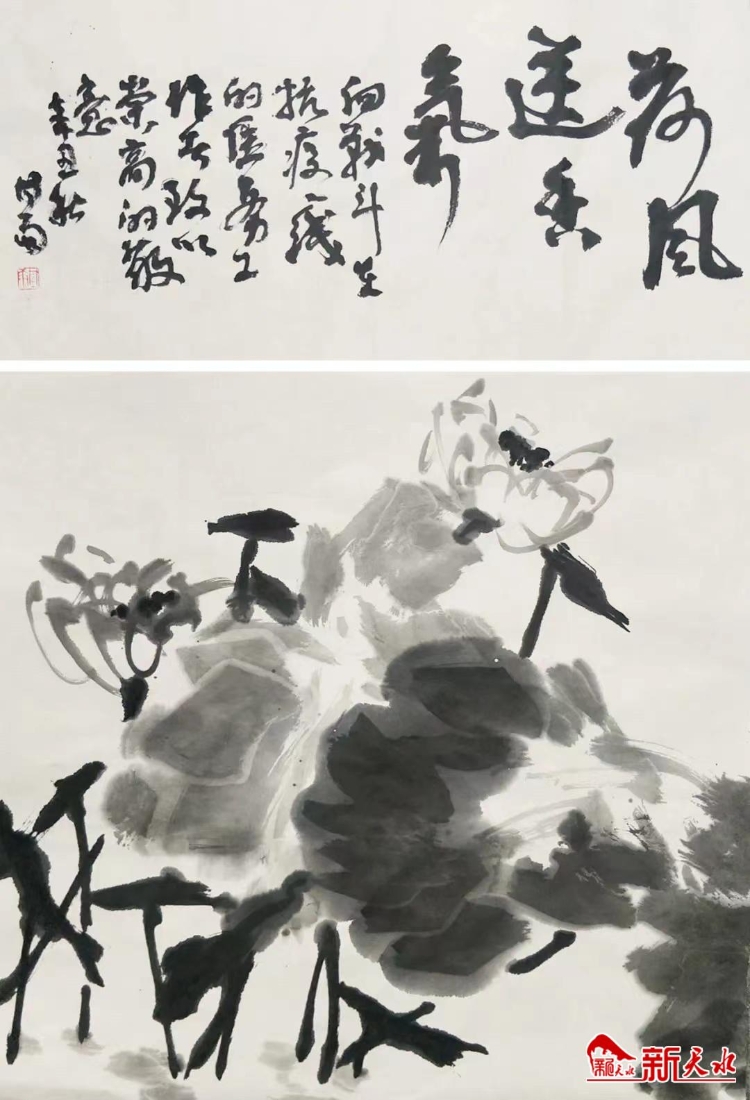 荷风
送香
氣
向战斗在
抗疫一线
的医务工
作者致以
崇高的敬
意
辛丑秋
新天水